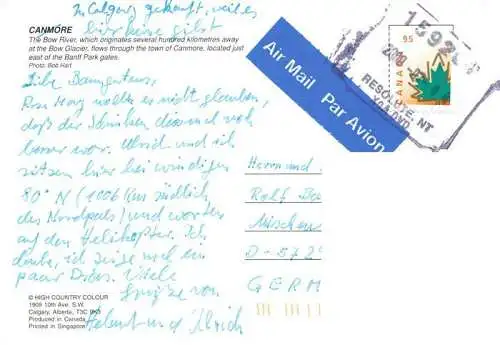 In Calgary gekauft, weil es
hier keine gibt
CANMORE
The Bow River, which originates several hundred kilometres away
at the Bow Glacier, flows through the town of Canmore, located just
east of the Banff Park gates.
Photo: Bob Hart
Air Mail Par Avion
95
CANADA
RESOLUTE, NT
Liebe
wollte es nicht glauben,
daß der Schinken
besser war. Ulrich und ich
sitzen hier bei windigen
80° N (1006 km südlich
des Nordpols) und warten
auf den Helikopter. Ich
denke, ich zeige mal ein
paar Dias. Viele
Grüße von
Helmut und Ulrich
Herrn und
Rolf
D-572
GERM
© HIGH COUNTRY COLOUR
1909 10th Ave. S.W.
Calgary, Alberta, T3C 0K3
Produced in Canada
Printed in Singapore